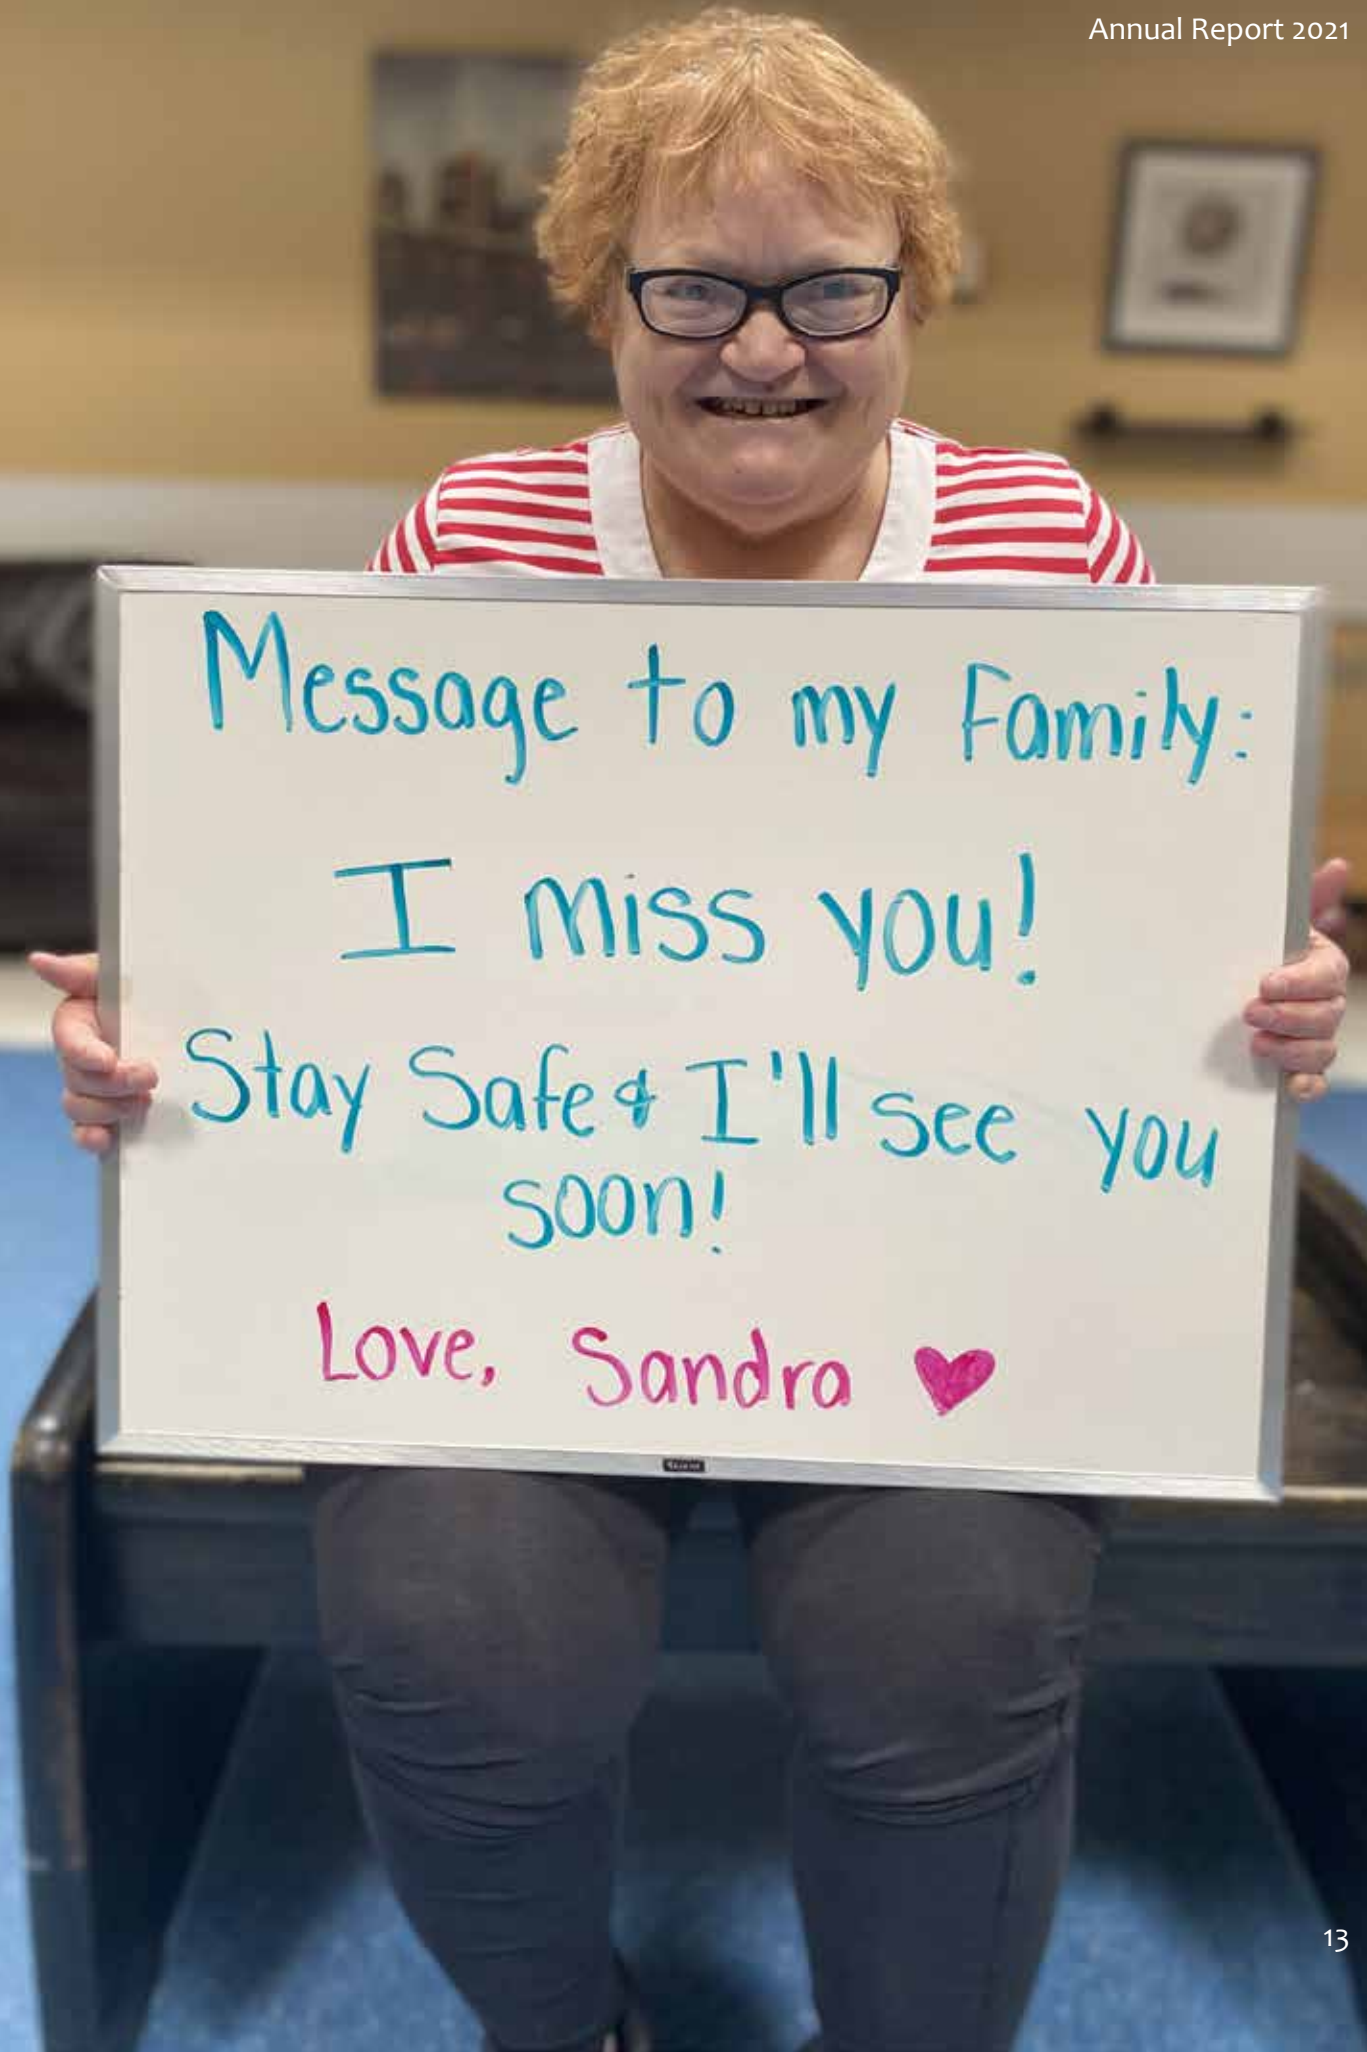 Annual Report 2021
Message to my Family:
I miss you!
Stay Safe & I'll see you
soon!
Love, Sandra
13